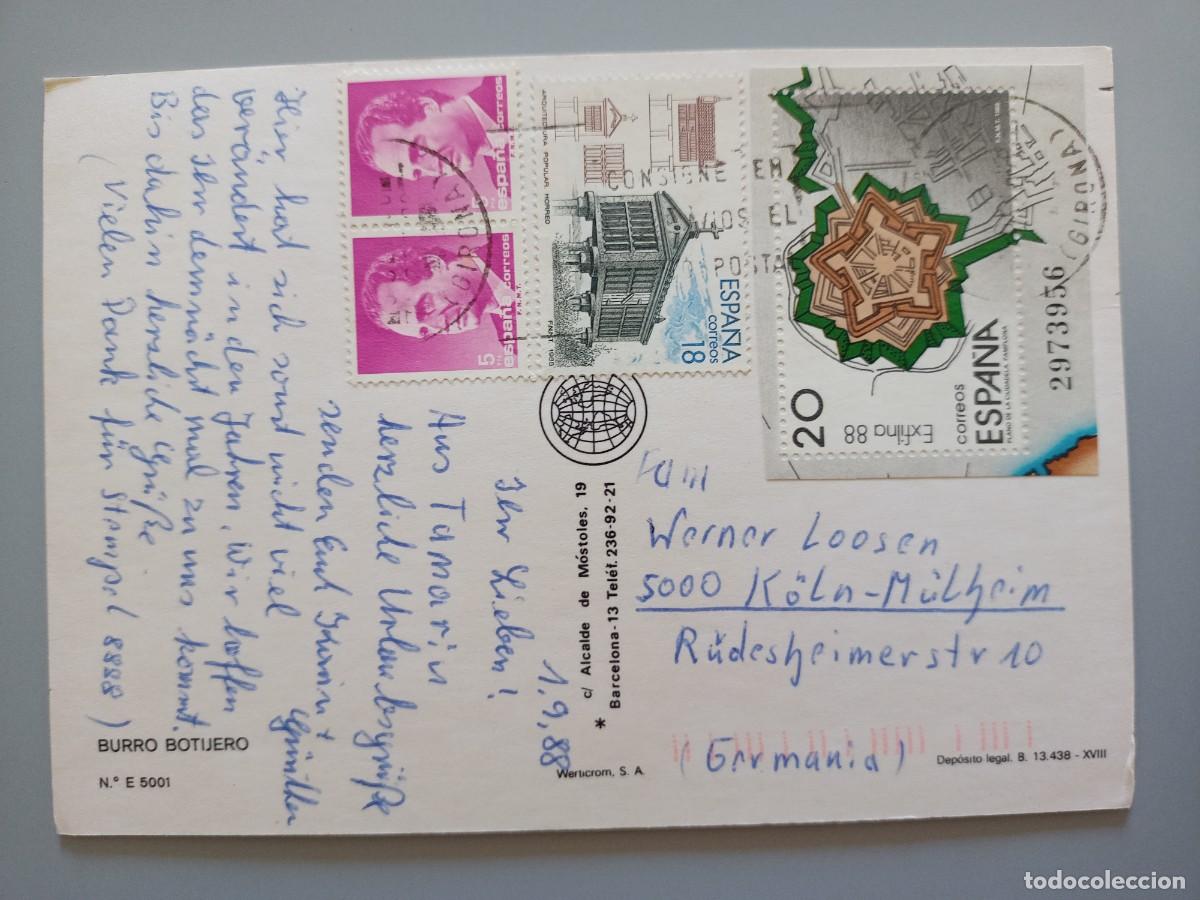 1.9.88
Ihr Lieben!
Aus Tamariu
herzliche Urlaubsgrüße
senden Euch
Günther
Hier hat sich sonst nicht viel
verändert in den Jahren. Wir hoffen
das Ihr demnächst mal zu uns kommt.
Bis dahin herzliche Grüße
(Vielen Dank für Stempel 8888)
BURRO BOTIJERO
N.° E 5001
* c/ Alcalde de Móstoles, 19
Barcelona-13 Teléf. 236-92-21
Werticrom, S. A.
5 PTA
españa correos
F.N.M.T.
5 PTA
españa correos
F.N.M.T.
ARQUITECTURA POPULAR. HORREO
ESPAÑA
correos
18
F.N.M.T. 1988
CONSIGNE EN
ENVIOS EL
POSTAL
(GIRONA)
(GIRONA)
20
Exfilna 88
correos
ESPAÑA
PLANO DE LA CIUDADELA PAMPLONA
F.N.M.T. 1988
2973956
Fam
Werner Loosen
5000 Köln-Mülheim
Rüdesheimerstr 10
(Germania)
Depósito legal. B. 13.438 - XVIII
todocoleccion